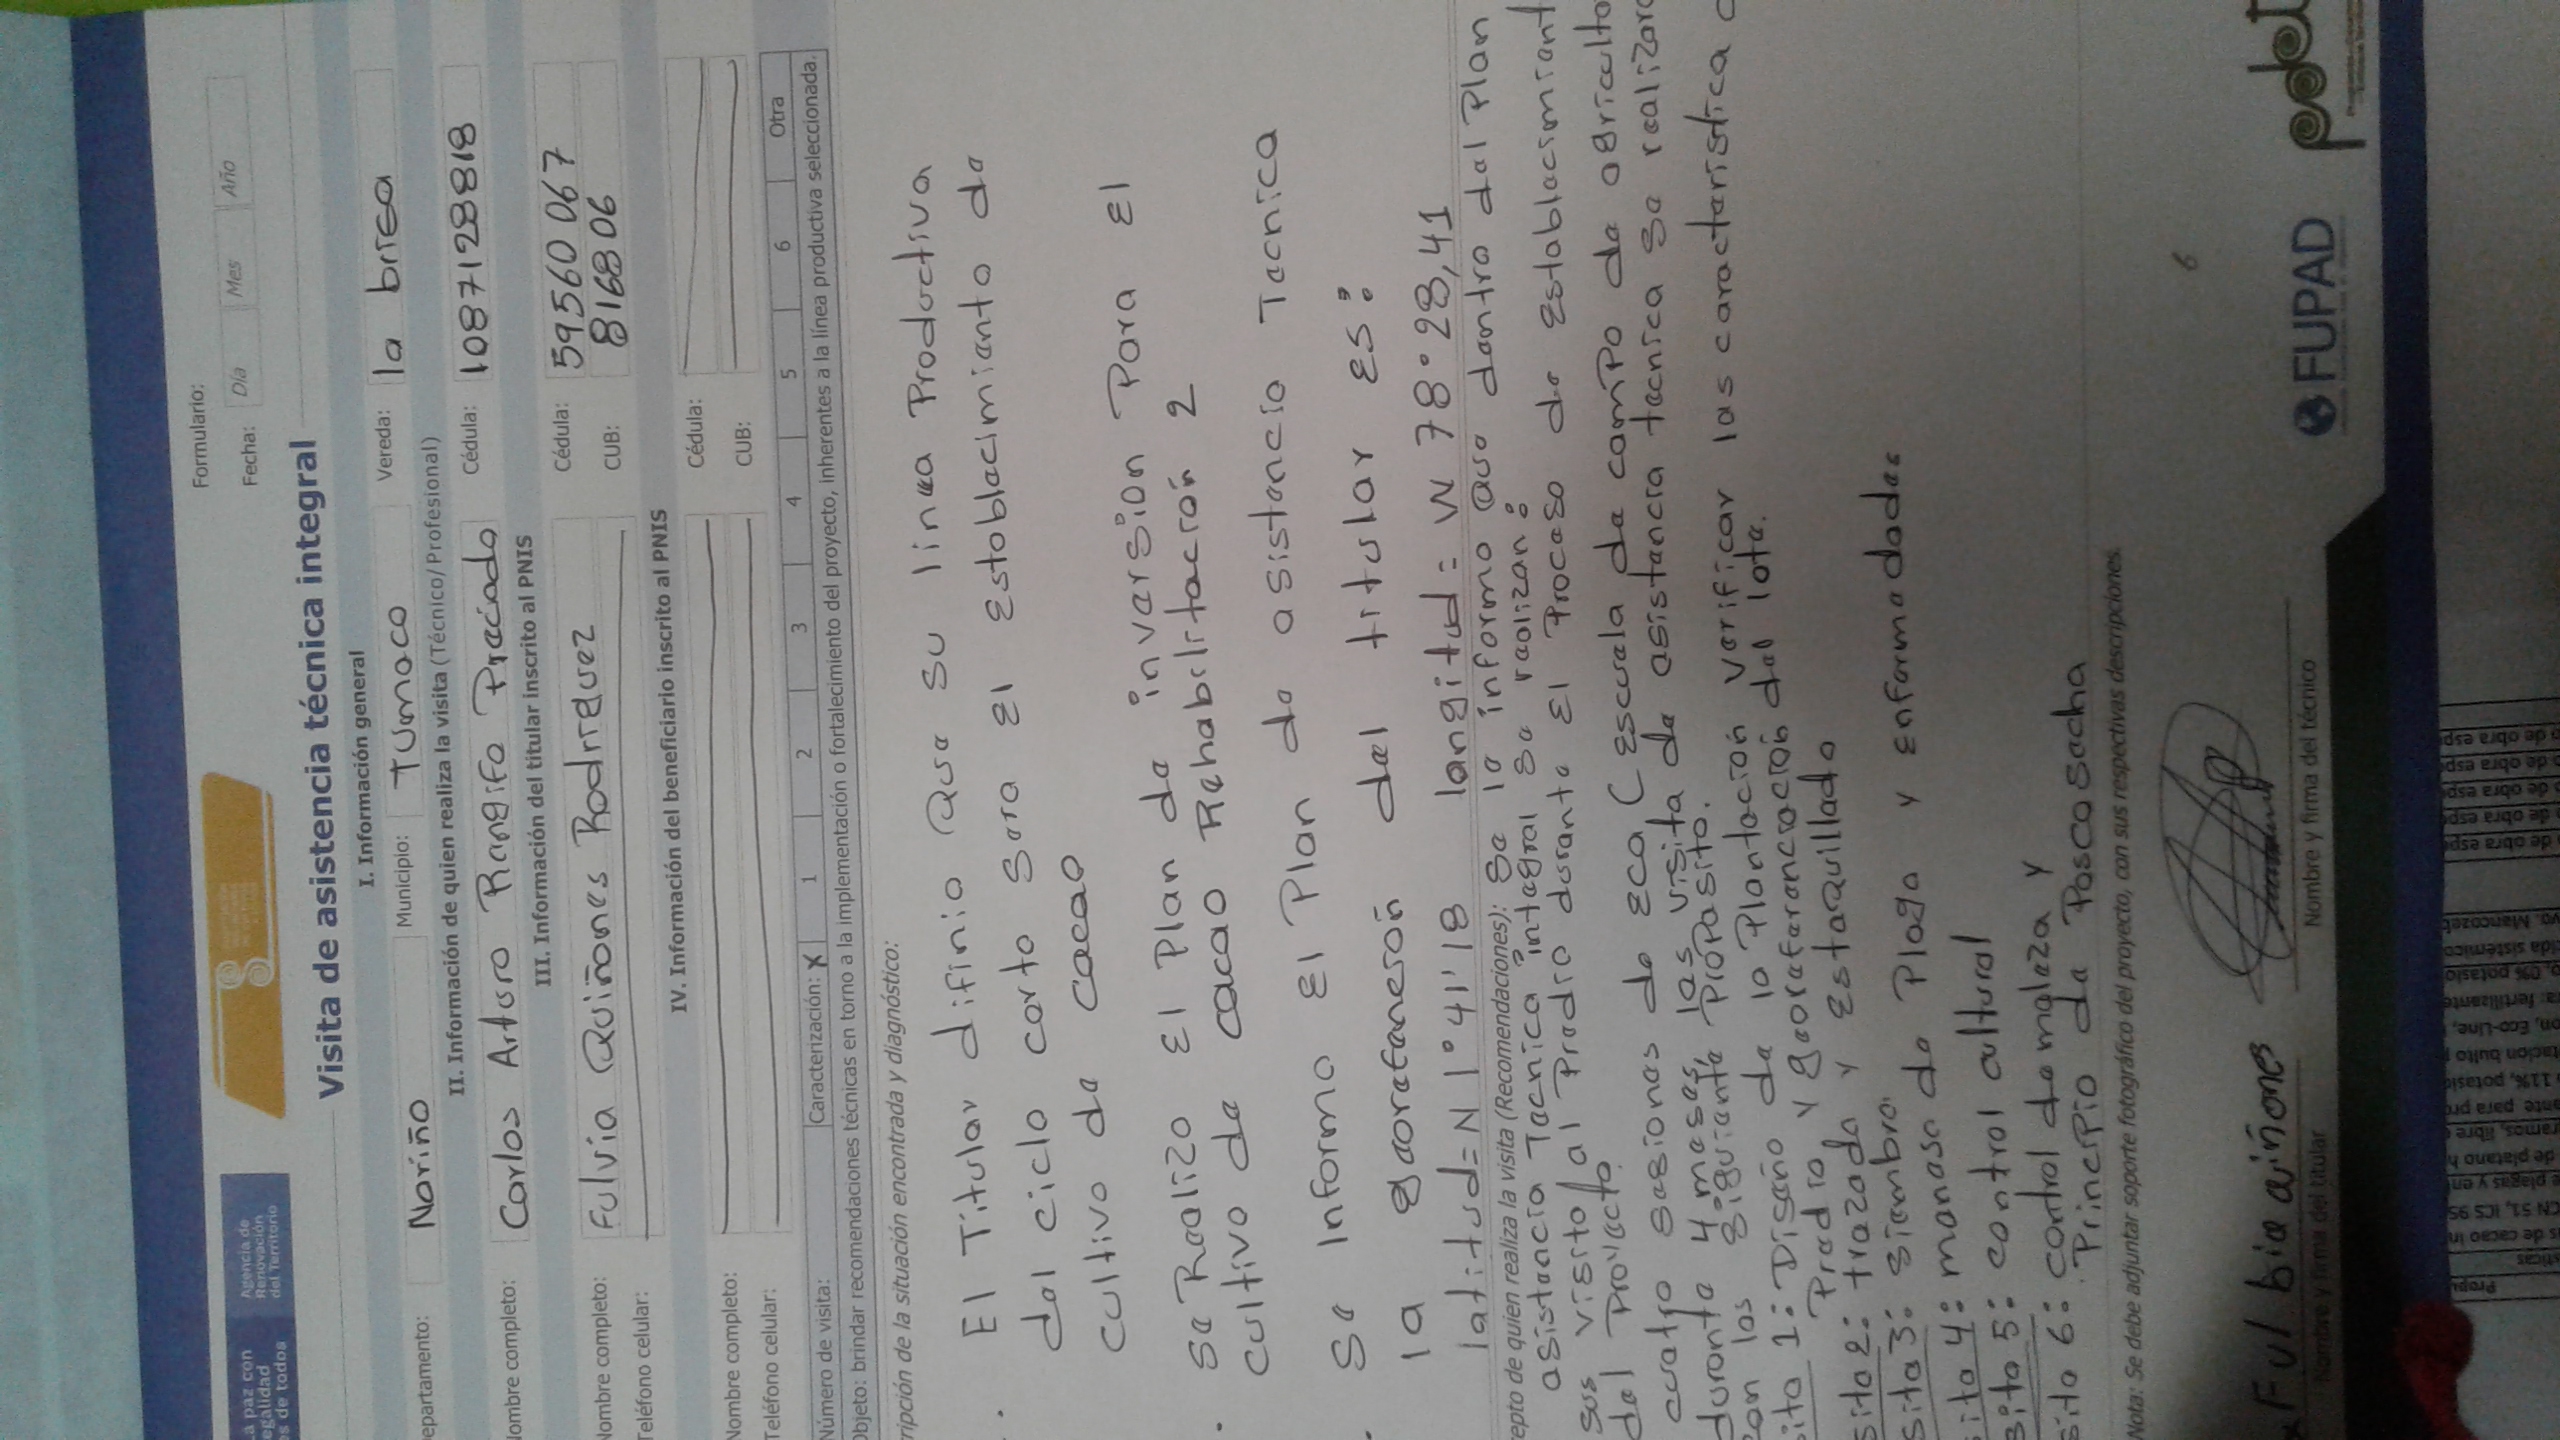 La paz con
legalidad
es de todos
Agencia de
Renovación
del Territorio
Formulario:
Fecha: Día Mes Año
Visita de asistencia técnica integral
I. Información general
epartamento: Nariño Municipio: Tumaco Vereda: la brisa
II. Información de quien realiza la visita (Técnico/Profesional)
Nombre completo: Carlos Arturo Rangifo Praciado Cédula: 1087128818
III. Información del titular inscrito al PNIS
Nombre completo: Fulvia Quiñones Rodriguez Cédula: 59560067
Teléfono celular: CUB: 8168 06
IV. Información del beneficiario inscrito al PNIS
Nombre completo: Cédula:
Teléfono celular: CUB:
Número de visita: Caracterización: X 1 2 3 4 5 6 Otra
Objeto: brindar recomendaciones técnicas en torno a la implementación o fortalecimiento del proyecto, inherentes a la línea productiva seleccionada.
ripción de la situación encontrada y diagnóstico:
. El Titular difinio Que su linea Productiva
dal ciclo corto sara El Establacimianto da
cultivo da cacao
. Sa Raalizo El Plan da invarsion Para El
cultivo da cacao Rahabilitación 2
. Sa Informo El Plan da asistancia Tacnica
la gaorafanesón dal titular Es:
latitud= N 1° 41' 18 langitud= W 78° 28,41
epto de quien realiza la visita (Recomendaciones): Sa la informo Que dantro dal Plan
asistancia Tacnica intagral sa raalizan:
sus visita al Pradio duranta El Procaso da Establacimiant
dal Proyacto.
cuatro sasionas da Eca (Escuala da camPo da agriculto
duranta 4 masas, las visita da asistancia tacnica sa raalizara
con los siguianta ProPasito.
sita 1: Disaño da la Plantación varificar las caractaristica d
Pradio y gaorafaranciación dal lota.
sita 2: trazado y Estaquillado
sita 3: siambra.
sita 4: manaso da Plaga y Enfarmadadas
sita 5: control cultural
sita 6: control da malaza y
PrincIPio da Poscosacha
Nota: Se debe adjuntar soporte fotográfico del proyecto, con sus respectivas descripciones.
6
x Ful bia aiñones
Nombre y firma del titular
Nombre y firma del técnico
FUPAD
pdet